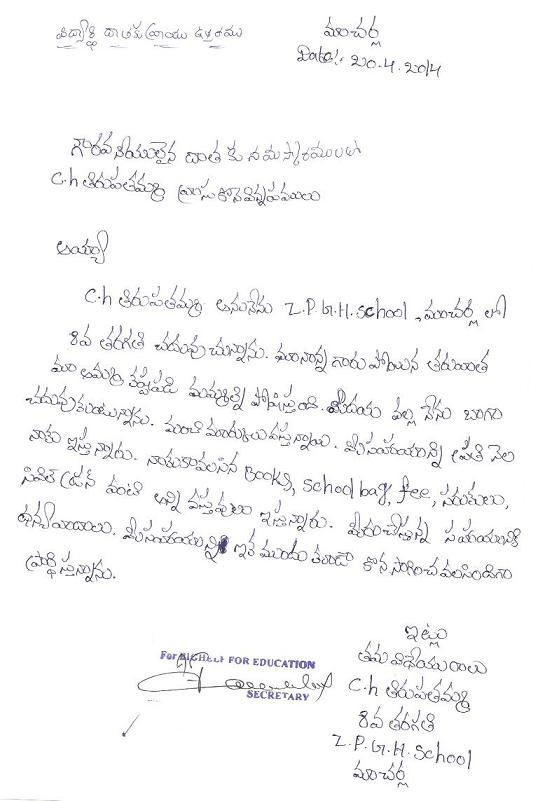 విద్యార్థి దాతకు వ్రాయు ఉత్తరము
మాచర్ల
Date:- 20.4.2014
గౌరవనీయులైన దాతకు నమస్కారములు
C.h తిరుపతమ్మ వ్రాసుకొనె విన్నపములు
అయ్యా
C.h తిరుపతమ్మ అనునేను Z.P.G.H.school, మాచర్ల లో
8వ తరగతి చదువుచున్నాను. మానాన్న గారు పోయిన తరువాత
మా అమ్మ కష్టపడి మమ్మల్ని పోషిస్తుంది. మీదయ వల్ల నేను బాగా
చదువుకుంటున్నాను. మంచి మార్కులు వస్తున్నాయి. మీసహాయాన్ని ప్రతి నెల
నాకు ఇస్తున్నారు. నాకుకావలసిన Books, school bag, fee, సరుకులు,
సివిల్ డ్రస్ వంటి అన్ని వస్తువులు ఇస్తున్నారు. మీరుచేస్తున్న సహాయానికి
ధన్యవాదాలు. మీసహాయాన్ని ఇక ముందు కూడా కొనసాగించ వలసిందిగా
ప్రార్థిస్తున్నాను.
ఇట్లు
తమ విధేయురాలు
C.h తిరుపతమ్మ
8వ తరగతి
Z.P.G.H.School
మాచర్ల
FOR EDUCATION
SECRETARY